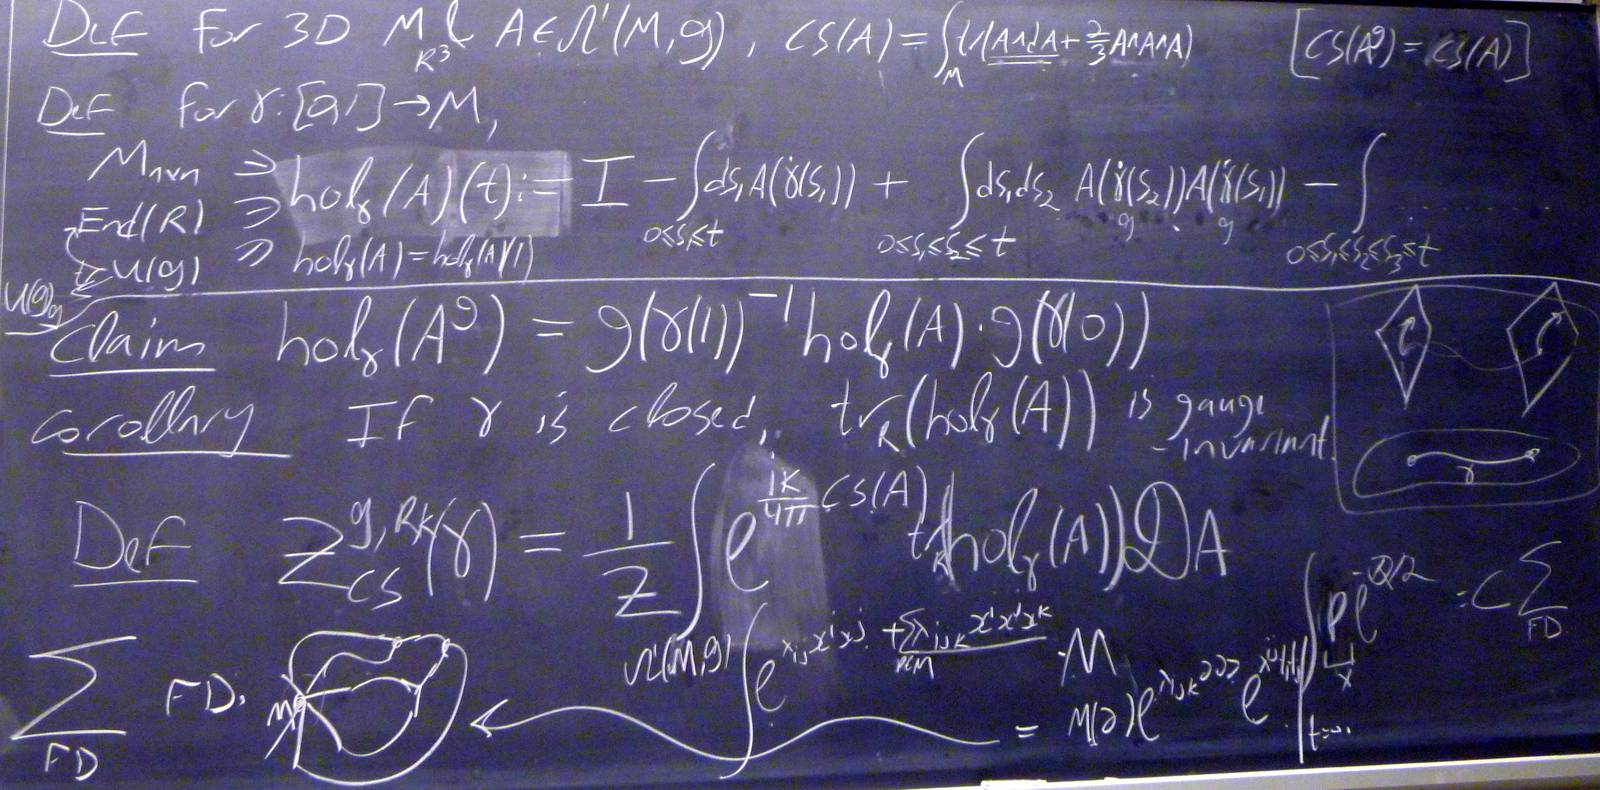 Def For 3D M_{R³} & A∈Ω¹(M,g), CS(A)=∫_M tr(A∧dA+⅔A∧A∧A) [CS(A^g)=CS(A)]
Def For γ:[0,1]→M,
M_{n×n} ∋ hol_γ(A)(t):= I − ∫_{0≤s₁≤t} ds₁A(γ̇(s₁)) + ∫_{0≤s₁≤s₂≤t} ds₁ds₂ A(γ̇(s₂))A(γ̇(s₁)) − ∫_{0≤s₁≤s₂≤s₃≤t} ......
g g
End(R) ∋
U(g) ∋ hol_γ(A)=hol_γ(A)(1)
U(g)_g
Claim hol_γ(A^g) = g(γ(1))^{-1} hol_γ(A)·g(γ(0))
Corollary If γ is closed, tr_R(hol_γ(A)) is gauge
-invariant.
γ
Def Z_{CS}^{g,R,k}(γ) = 1/Z ∫_{Ω¹(M,g)} e^{ik/4π CS(A)} tr_R(hol_γ(A)) 𝒟A
∫ P e^{-Q/2} = C Σ_{FD}
Σ_{FD} FD. M ∫ e^{λ_{ij}x^i x^j + Σλ_{ijk}x^i x^j x^k} · M
= M(∂)e^{λ_{ijk}∂∂∂} e